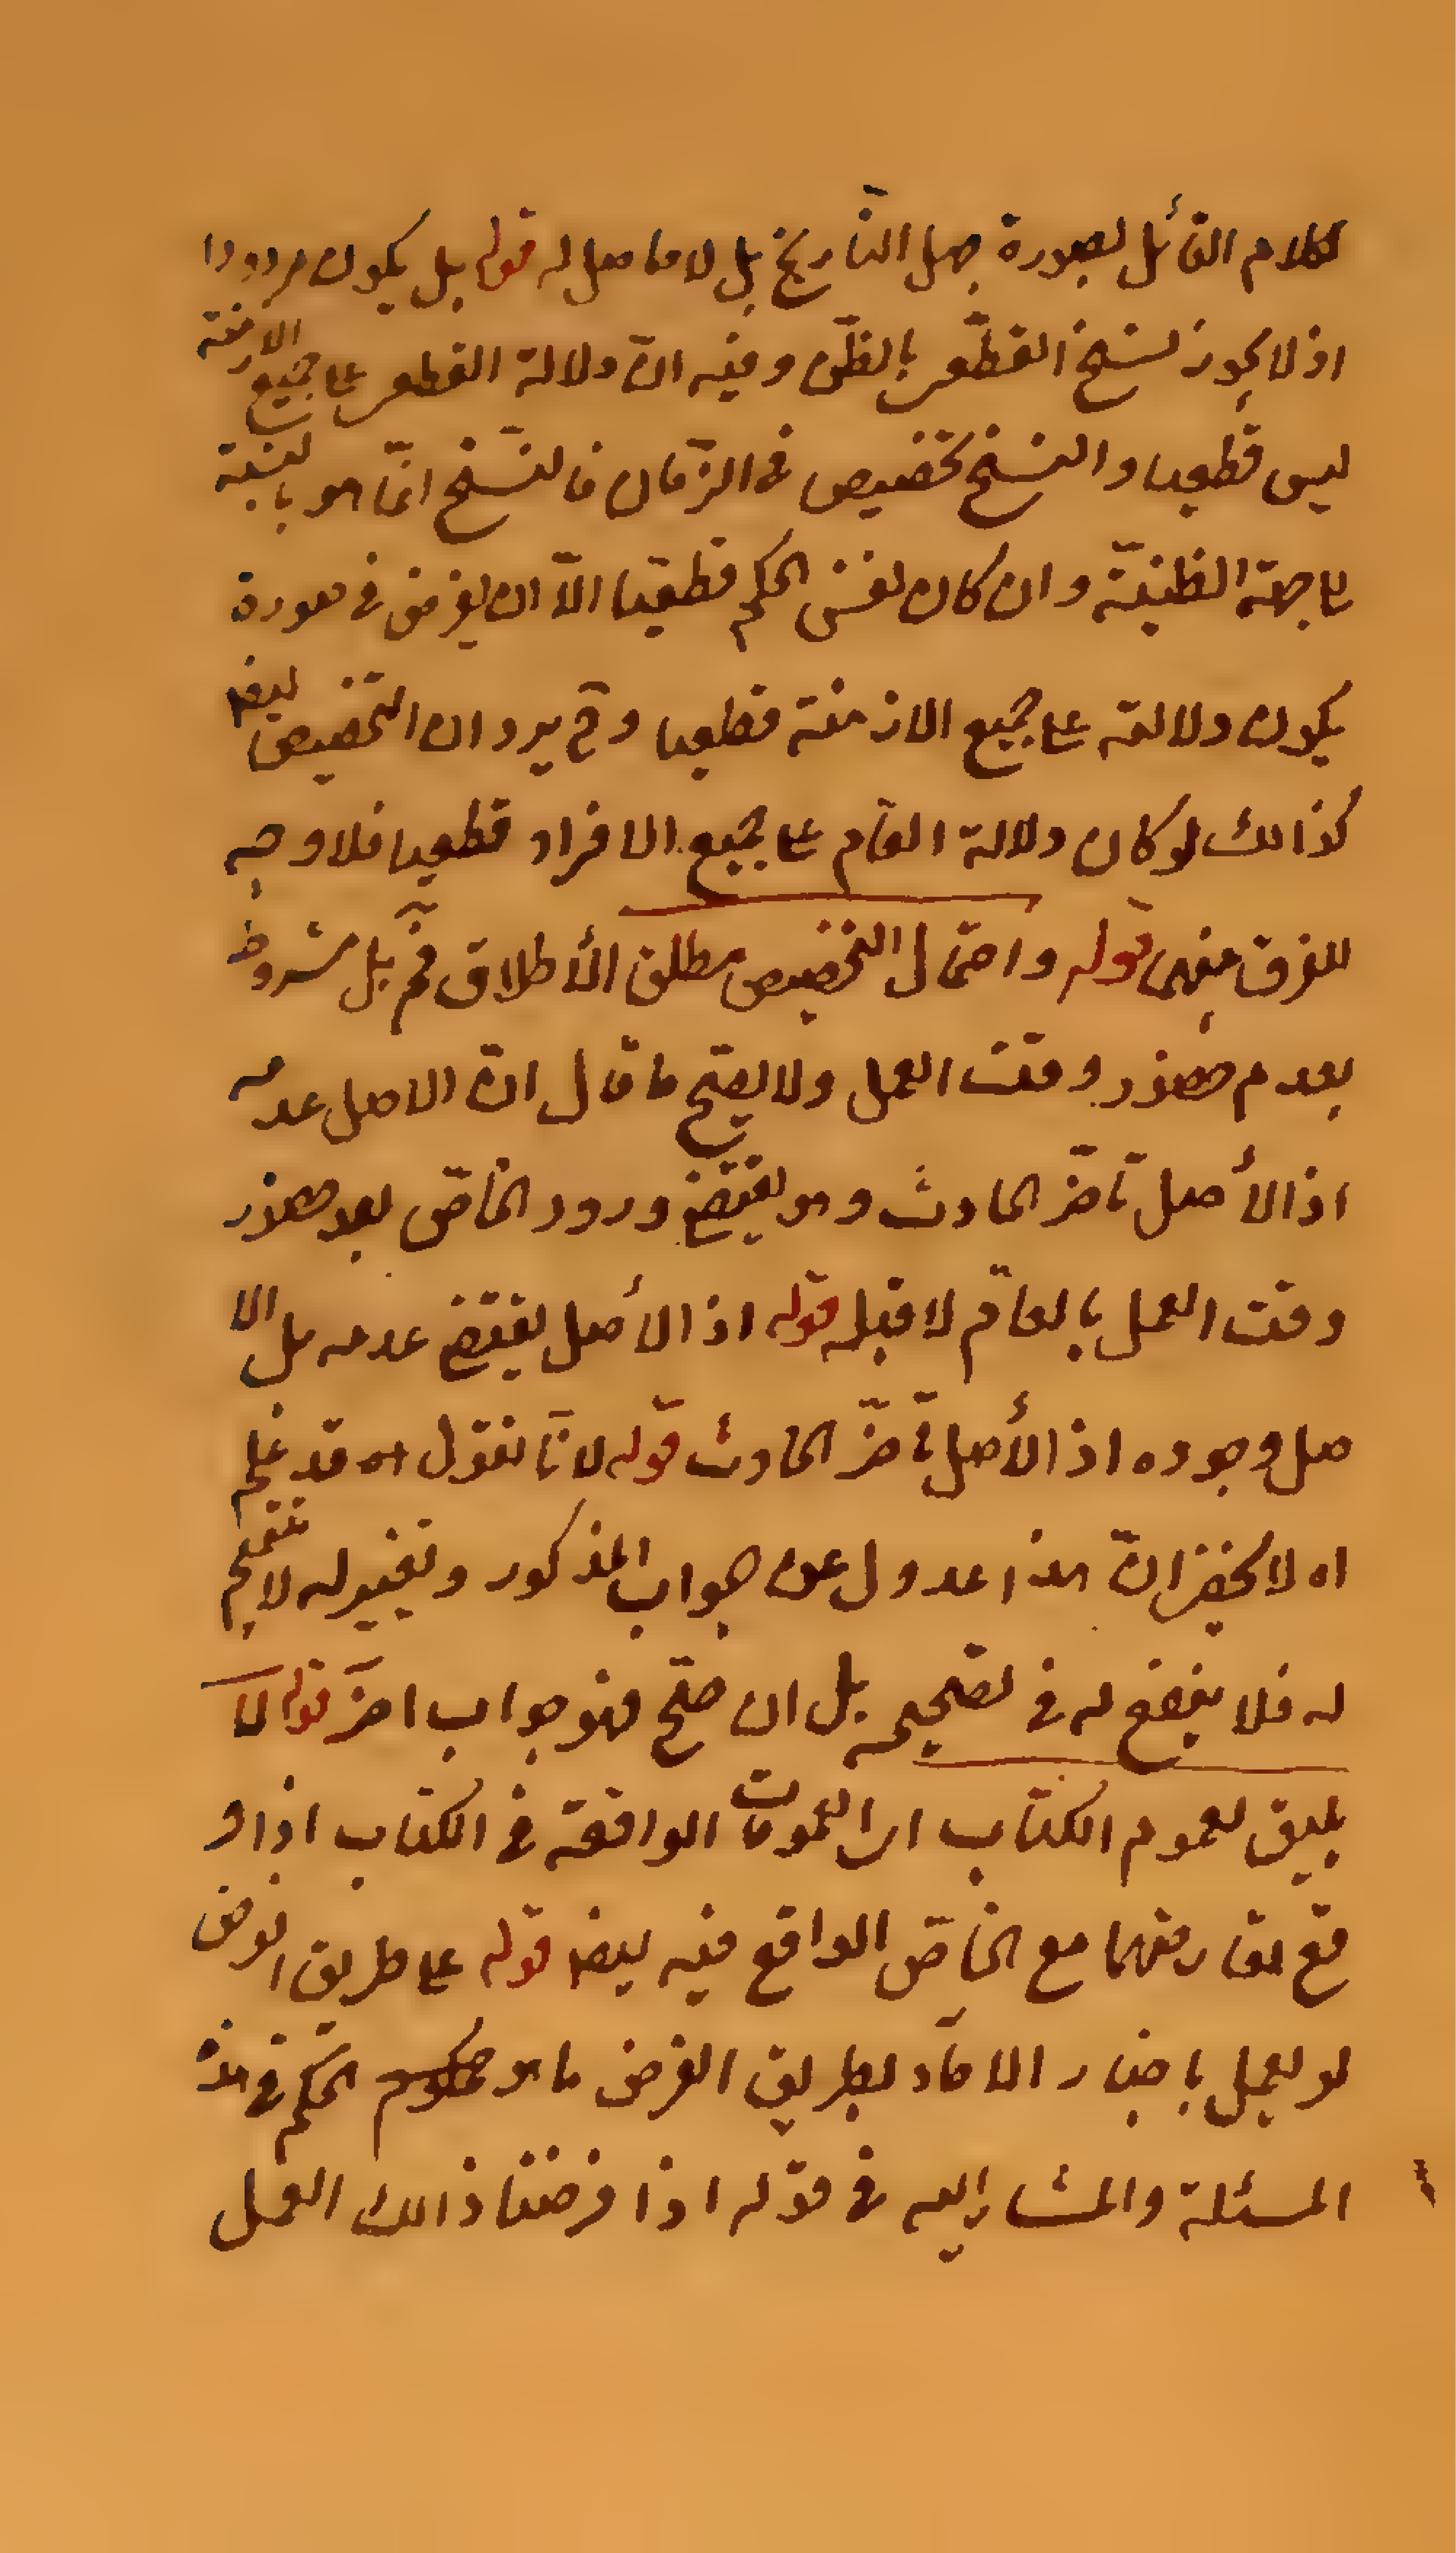 لكلام القائل بصورة جهل التأريخ بل لا حاصل له قوله بل يكون مردودا
اذ لا يجوز نسخ القطعى بالظنى وفيه ان دلالة القطعى على جميع الازمنة
ليس قطعيا والنسخ تخصيص فى الزمان فالنسخ انما هو بالنسبة
على جهة الظنية وان كان نفس الحكم قطعيا الا ان يفرض فى صورة
يكون دلالته على جميع الازمنة قطعيا وح يرد ان التخصيص ايضا
كذالك لو كان دلالة العام على جميع الافراد قطعيا فلا وجه
للفرق منهما قوله واحتمال التخصيص مطلق الأطلاق مم بل مشروط
بعدم حضور وقت العمل ولا يصح ما قال ان الاصل عدمه
اذ الأصل تاخر الحادث وهو يقتضى ورود الخاص بعد حضور
وقت العمل بالعام لا قبله قوله اذ الأصل يقتضى عدمه بل الا
صل وجوده اذ الأصل تاخر الحادث قوله لانا نقول اه قد علم
اه لا يخفى ان هذا عدول عن جواب المذكور وتغيير له لا تتميم
له فلا ينفع له فى تصحيحه بل ان صح فهو جواب اخر قوله لا
يليق لعموم الكتاب اى العمومات الواقعة فى الكتاب اذا و
قع مقارنتها مع الخاص الواقع فيه ايضا قوله على طريق الفرض
لو يعمل باخبار الاحاد بطريق الفرض ما هو محكوم الحكم فى هذه
المسئلة والمشار اليه فى قوله اذا فرضنا ذالك العمل